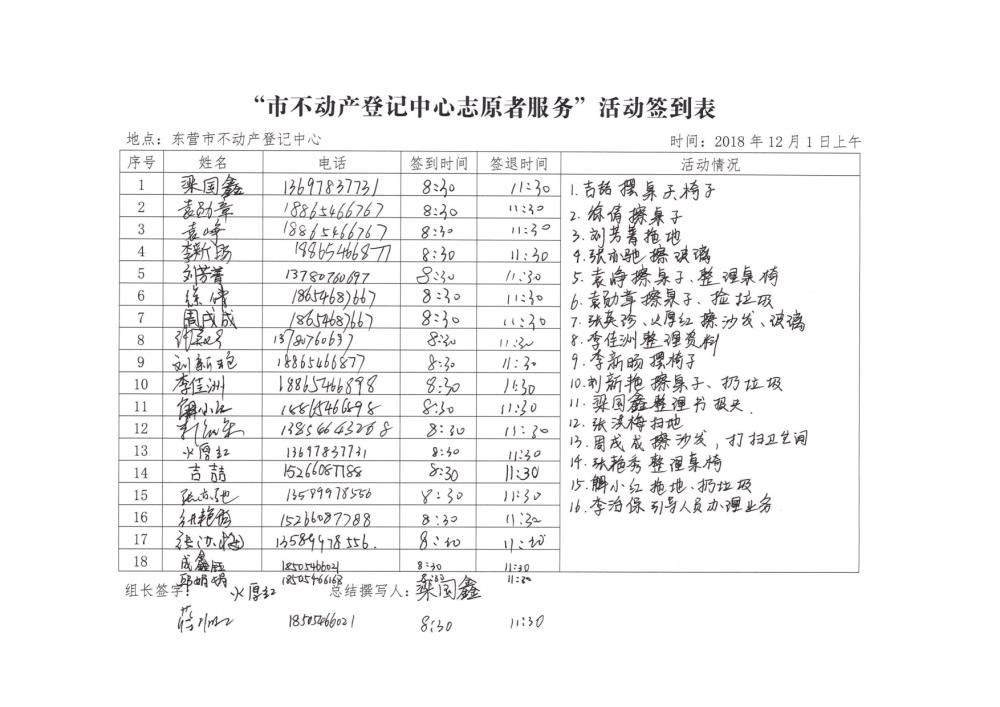 “市不动产登记中心志原者服务”活动签到表
地点：东营市不动产登记中心 时间：2018 年 12 月 1 日上午
序号 姓名 电话 签到时间 签退时间 活动情况
1 梁国鑫 13697837731 8:30 11:30
2 袁勋章 18865466767 8:30 11:30
3 袁峥 18865466767 8:30 11:30
4 李新旸 18865466877 8:30 11:30
5 刘芳菁 13780760697 8:30 11:30
6 徐倩 18654687667 8:30 11:30
7 周成成 18654687667 8:30 11:30
8 13780760697 8:30 11:30
9 刘新艳 18865466877 8:30 11:30
10 李佳洲 18865466898 8:30 11:30
11 解小红 18865466898 8:30 11:30
12 8:30 11:30
13 火厚红 13697837731 8:30 11:30
14 吉喆 15266087788 8:30 11:30
15 张亦驰 13589978556 8:30 11:30
16 张艳秀 15266087788 8:30 11:30
17 13589978556. 8:30 11:30
18 成鑫钰 18505466021 8:30 11:30
邱娟娟 18505466168 8:30 11:30
1.吉喆 摆桌子、椅子
2.徐倩擦桌子
3.刘芳菁拖地
4.张亦驰擦玻璃
5.袁峥擦桌子、整理桌椅
6.袁勋章擦桌子、捡垃圾
7.张英珍、火厚红擦沙发、玻璃
8.李佳洲整理资料
9.李新旸摆椅子
10.刘新艳擦桌子、扔垃圾
11.梁国鑫整理书报夹.
12.张洪梅扫地
13.周成成擦沙发，打扫卫生间
14.张艳秀整理桌椅
15.解小红拖地、扔垃圾
16.李治保引导人员办理业务
组长签字： 火厚红 总结撰写人：梁国鑫
18505466021 8:30 11:30